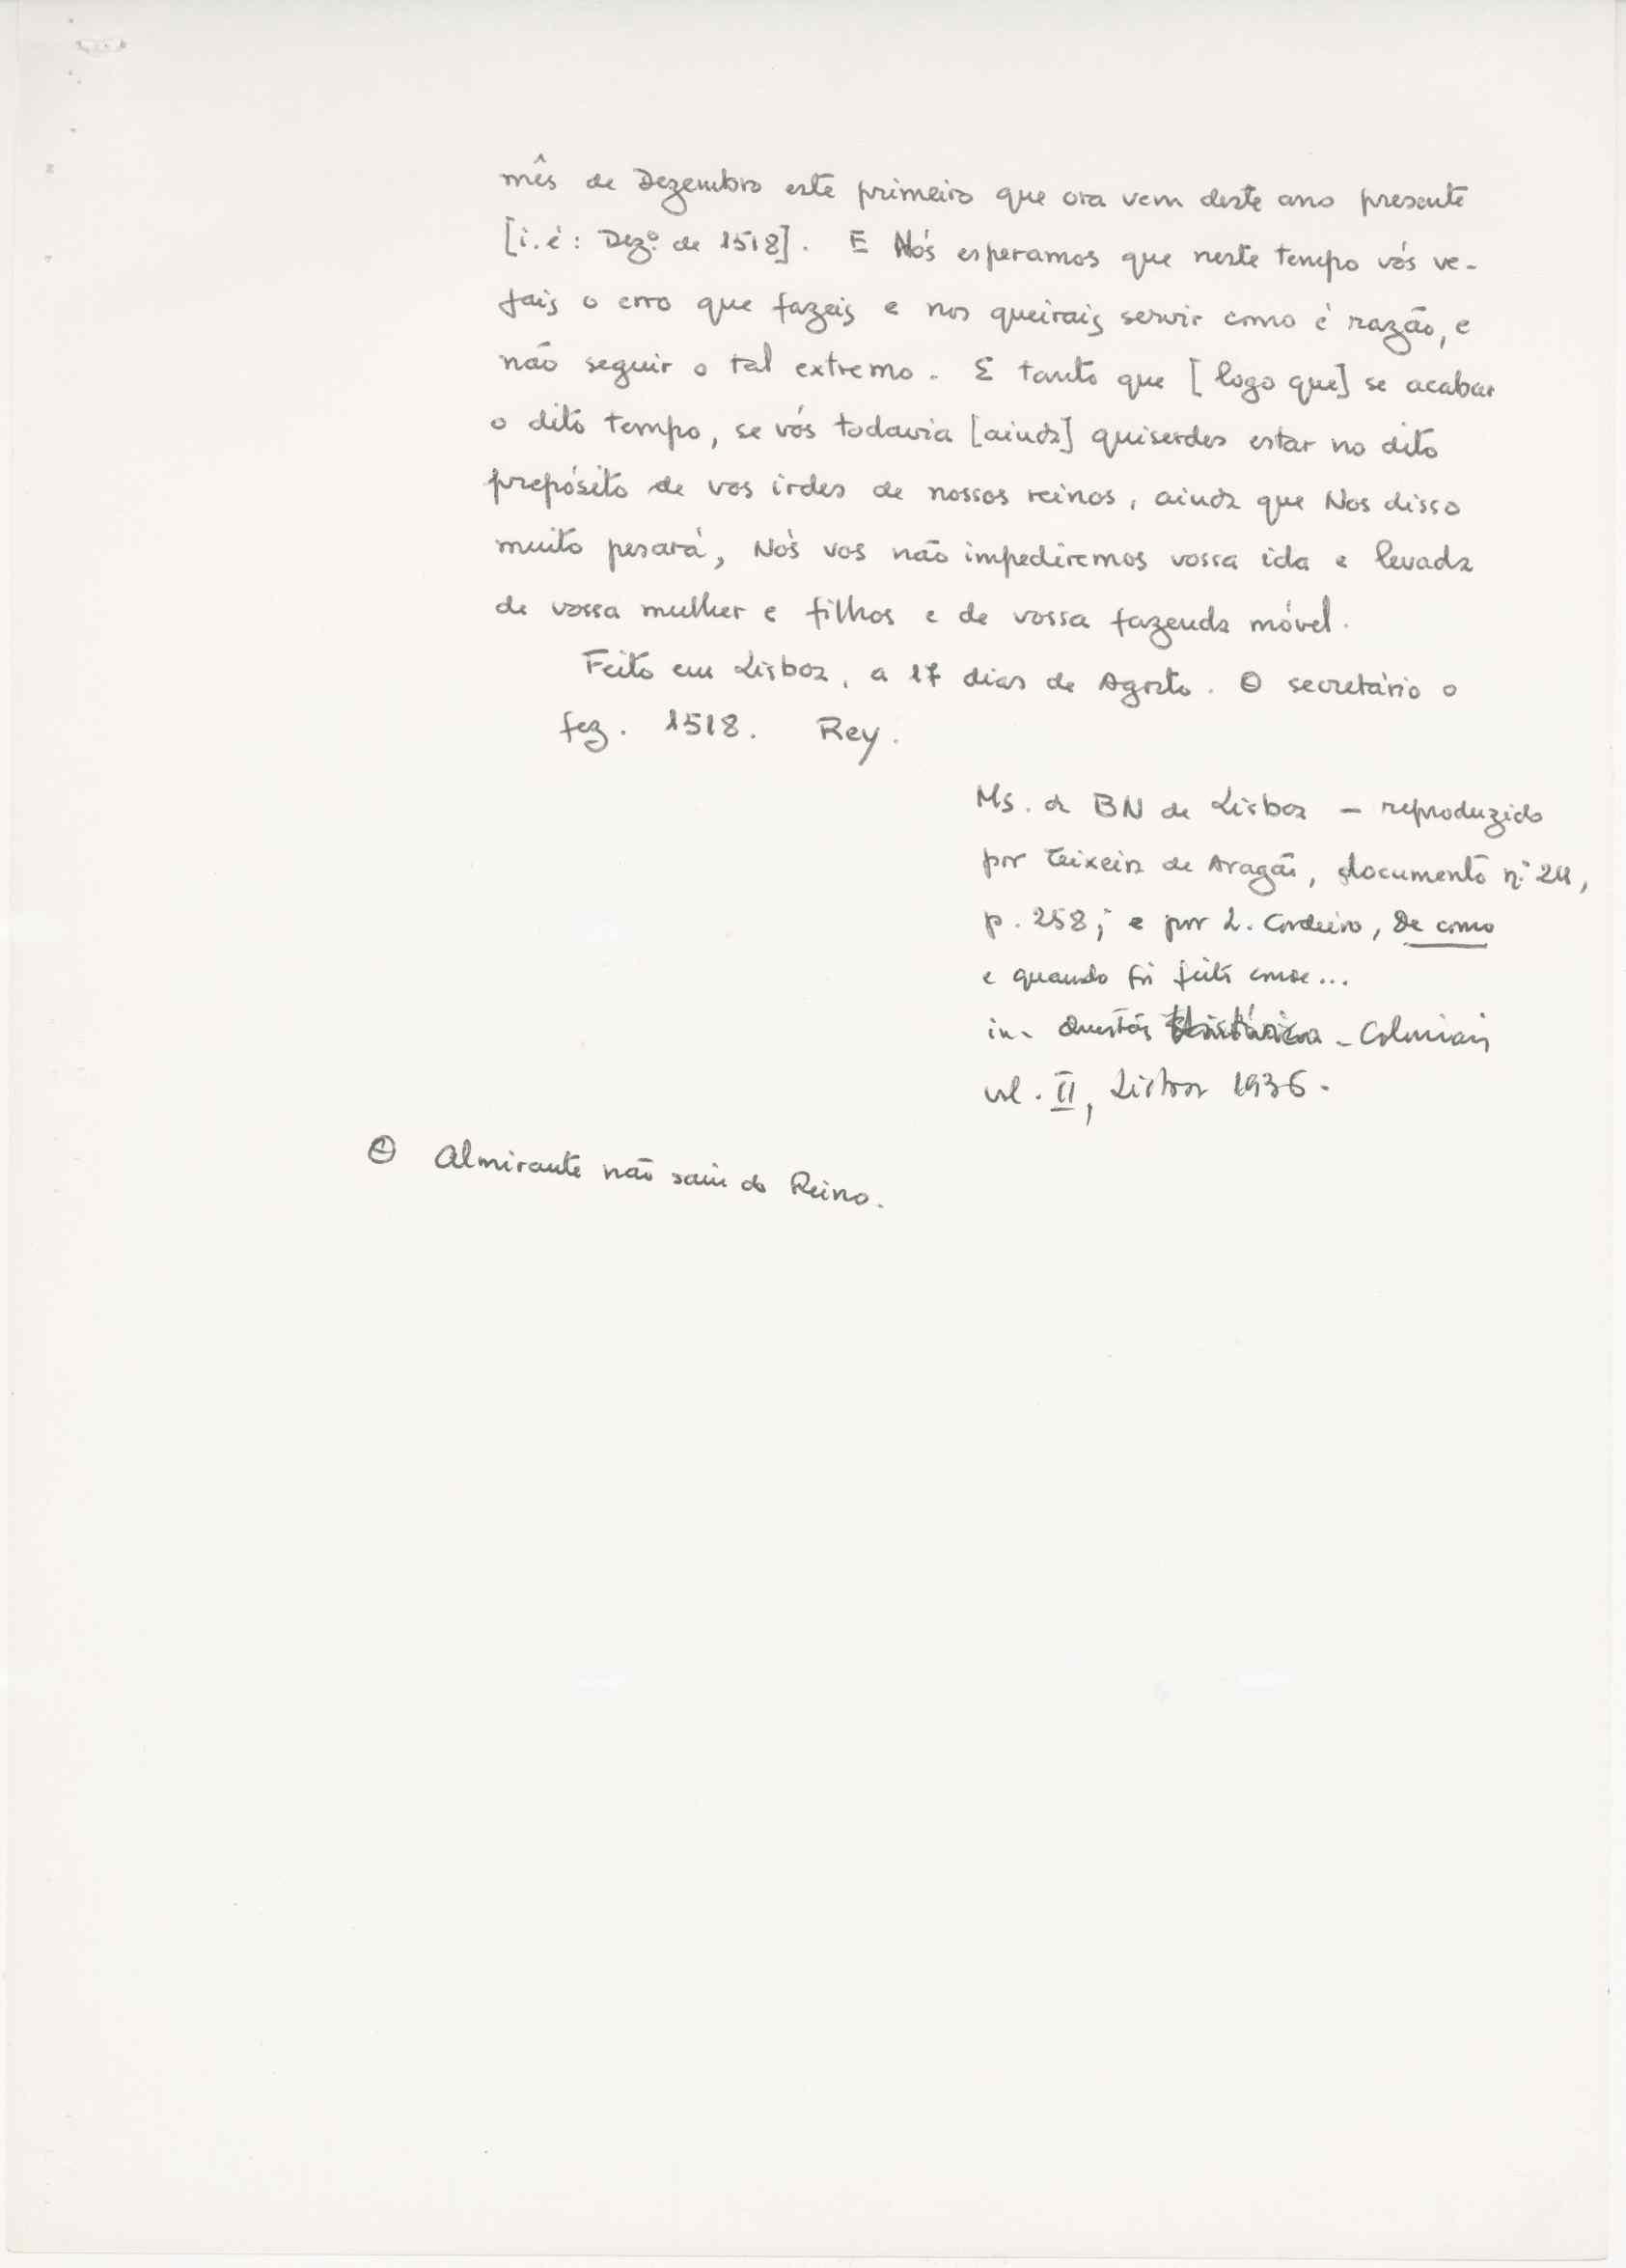 mês de Dezembro este primeiro que ora vem deste ano presente
[i.é: Dezº. de 1518]. E Nós esperamos que neste tempo vós ve-
jais o erro que fazeis e nos queirais servir como é razão, e
não seguir o tal extremo. E tanto que [logo que] se acabar
o dito tempo, se vós todavia [ainda] quiserdes estar no dito
prepósito de vos irdes de nossos reinos, ainda que Nos disso
muito pesará, Nós vos não impediremos vossa ida e levada
de vossa mulher e filhos e de vossa fazenda móvel.
Feito em Lisboa, a 17 dias de Agosto. O secretário o
fez. 1518. Rey.
Ms. da BN de Lisboa - reproduzido
por Teixeira de Aragão, documento n.º 24,
p. 258; e por L. Cordeiro, De como
e quando foi feito conde...
in- Questões Históricas - Coloniais
vol. II, Lisboa 1936.
O Almirante não saiu do Reino.